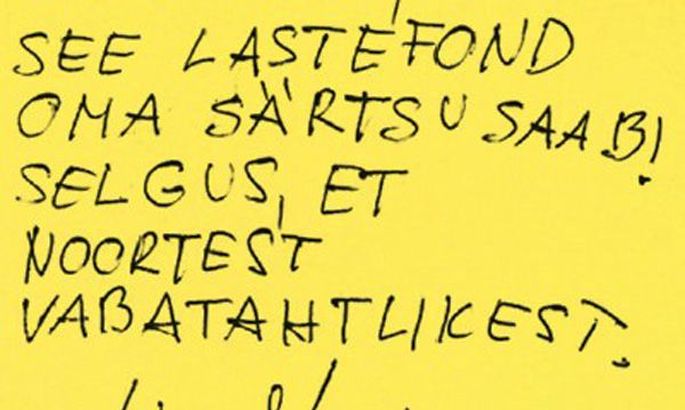 SEE LASTEFOND
OMA SÄRTSU SAAB!
SELGUS, ET
NOORTEST
VABATAHTLIKEST.